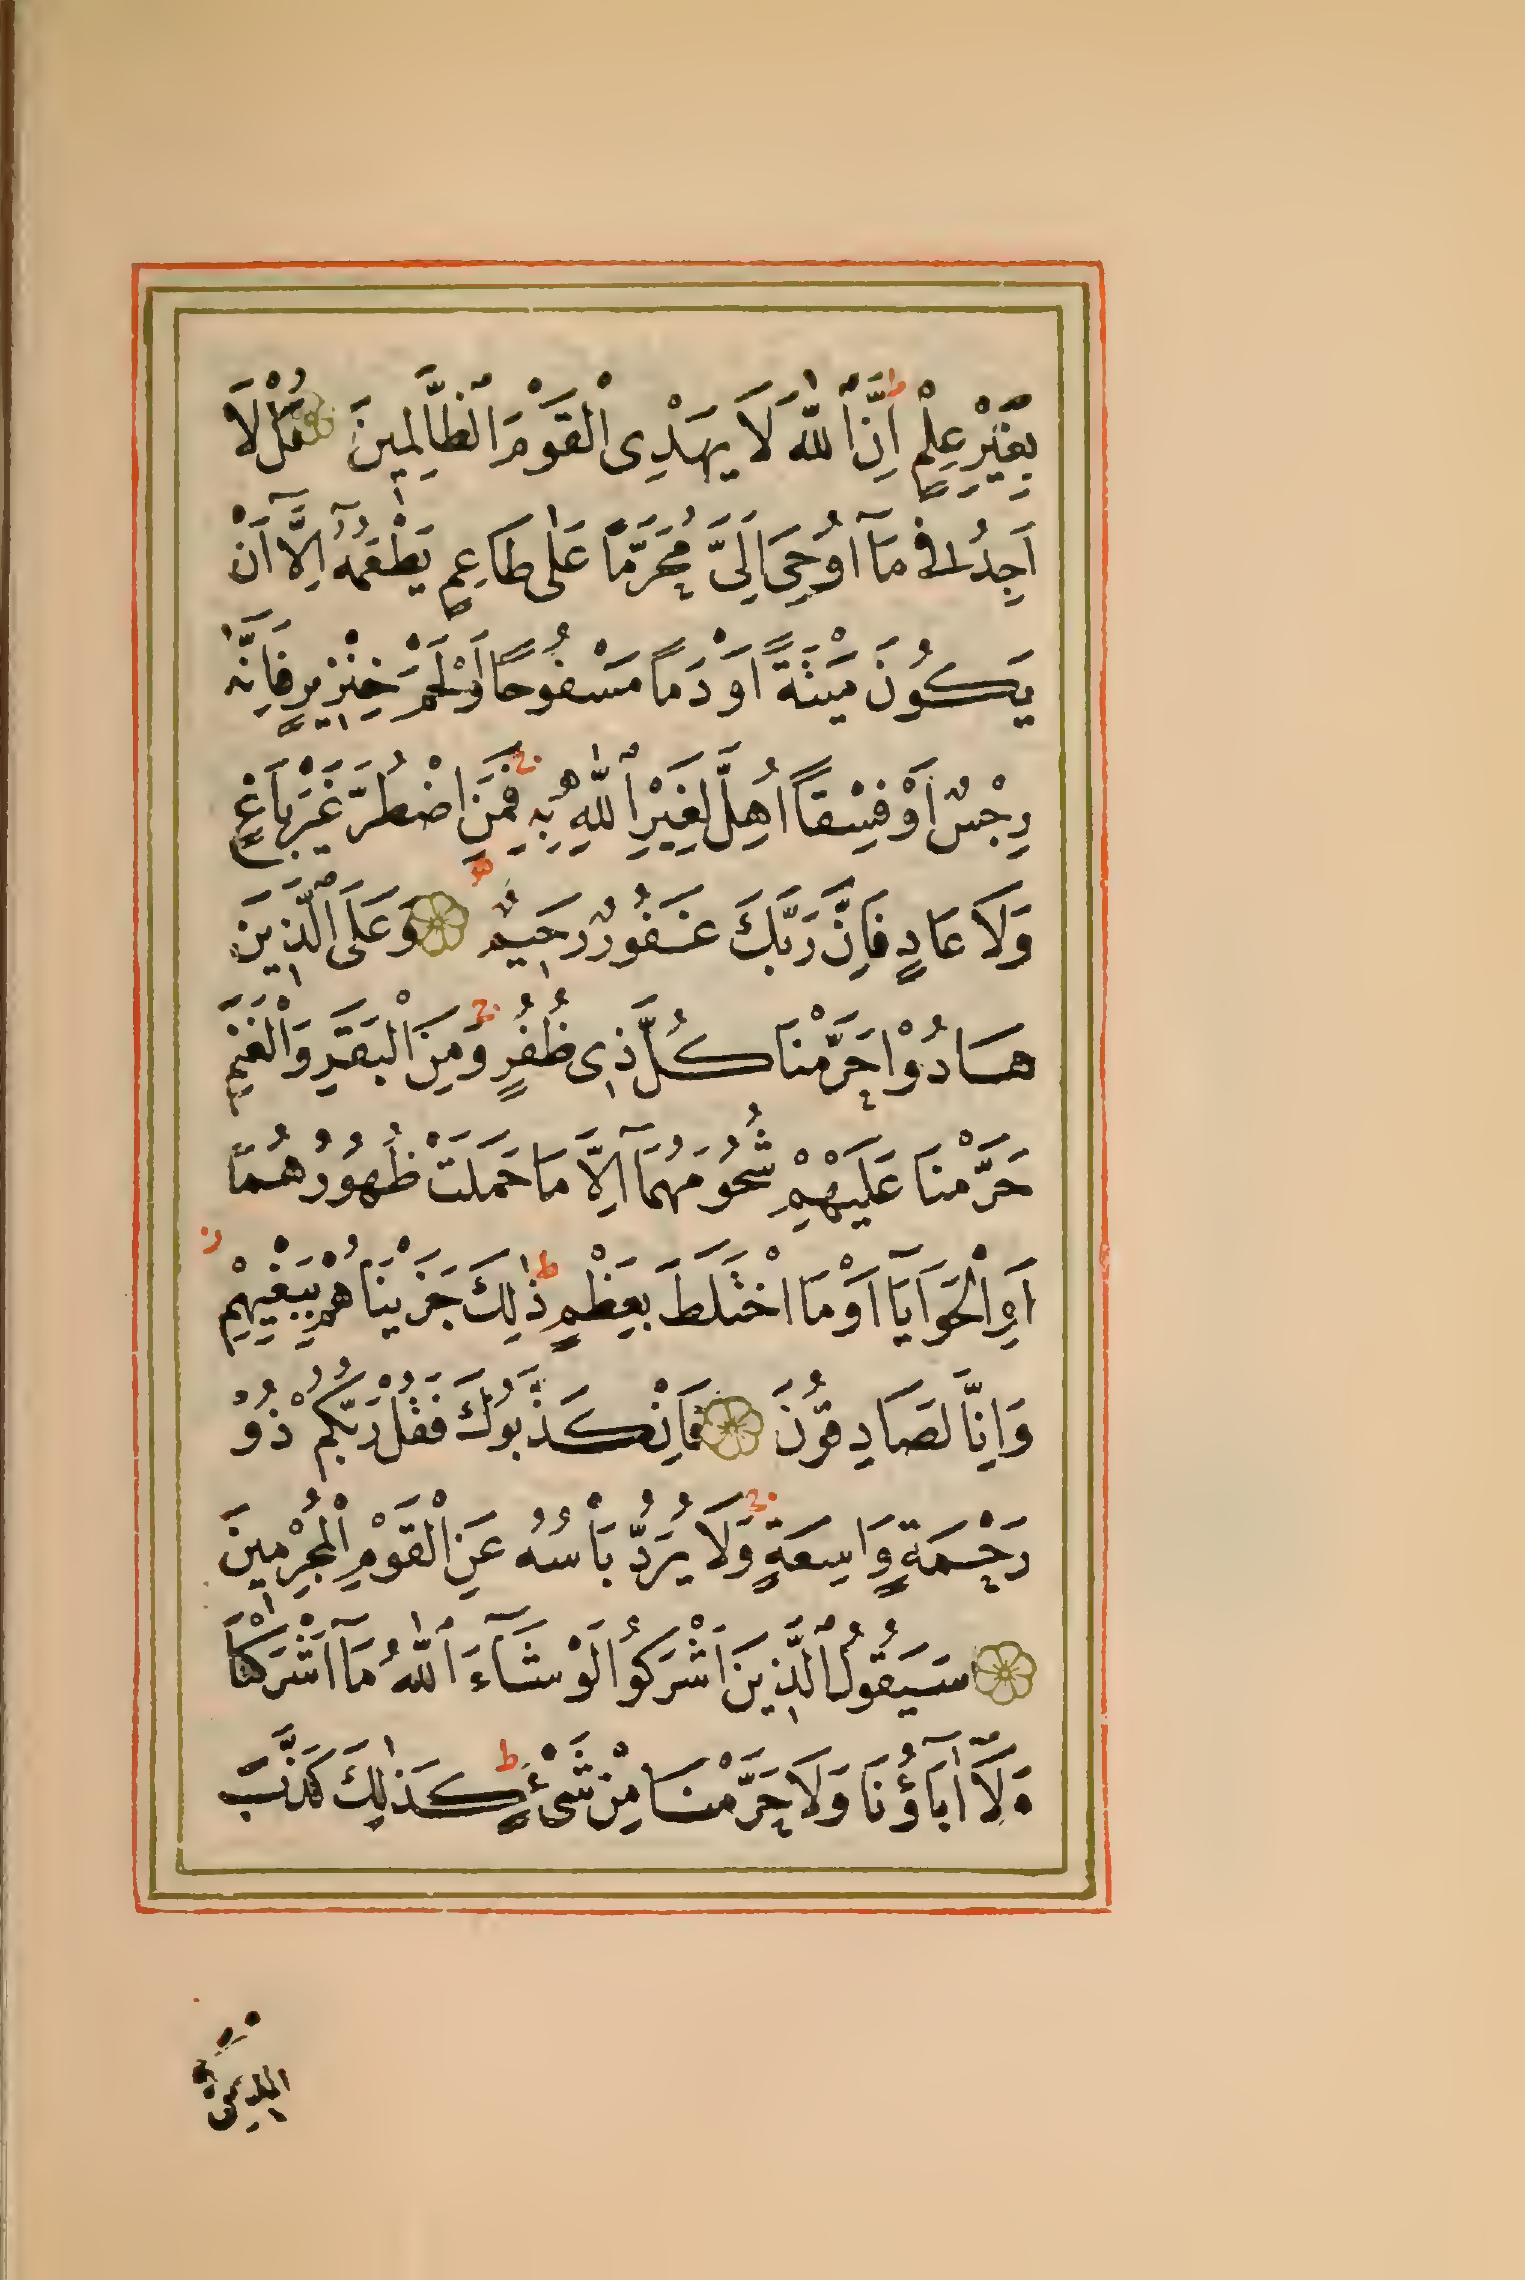 بِغَيْرِ عِلْمٍ ط اِنَّ ٱللّٰهَ لَا يَهْدِى الْقَوْمَ ٱلظَّالِمِينَ قُلْ لَا
اَجِدُ فِى مَآ اُوحِىَ اِلَىَّ مُحَرَّمًا عَلٰى طَاعِمٍ يَطْعَمُهُٓ اِلَّآ اَنْ
يَكُونَ مَيْتَةً اَوْ دَمًا مَسْفُوحًا اَوْ لَحْمَ خِنْزِيرٍ فَاِنَّهُ
رِجْسٌ اَوْ فِسْقًا اُهِلَّ لِغَيْرِ ٱللّٰهِ بِهِ ج فَمَنِ اضْطُرَّ غَيْرَ بَاغٍ
وَلَا عَادٍ فَاِنَّ رَبَّكَ غَفُورٌ رَحِيمٌ وَعَلَى ٱلَّذِينَ
هَادُوْا حَرَّمْنَا كُلَّ ذِى ظُفُرٍ ج وَمِنَ الْبَقَرِ وَالْغَنَمِ
حَرَّمْنَا عَلَيْهِمْ شُحُومَهُمَآ اِلَّا مَا حَمَلَتْ ظُهُورُهُمَا
اَوِ الْحَوَايَآ اَوْ مَا اخْتَلَطَ بِعَظْمٍ ط ذٰلِكَ جَزَيْنَاهُمْ بِبَغْيِهِمْ ز
وَاِنَّا لَصَادِقُونَ فَاِنْ كَذَّبُوكَ فَقُلْ رَبُّكُمْ ذُوْ
رَحْمَةٍ وَاسِعَةٍ ج وَلَا يُرَدُّ بَاْسُهُ عَنِ الْقَوْمِ الْمُجْرِمِينَ
سَيَقُولُ ٱلَّذِينَ اَشْرَكُوا لَوْ شَآءَ ٱللّٰهُ مَآ اَشْرَكْنَا
وَلَآ اٰبَآؤُنَا وَلَا حَرَّمْنَا مِنْ شَىْءٍ ط كَذٰلِكَ كَذَّبَ
الذين